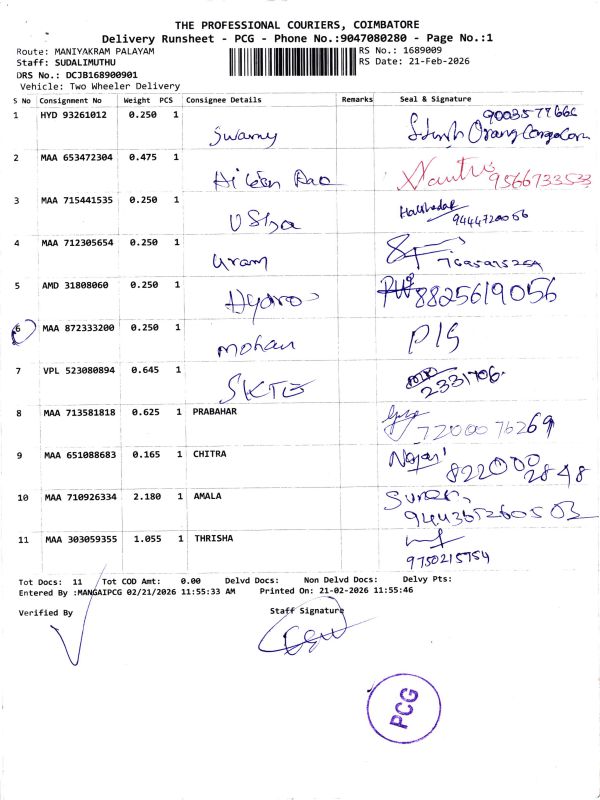 THE PROFESSIONAL COURIERS, COIMBATORE
Delivery Runsheet - PCG - Phone No.:9047080280 - Page No.:1
Route: MANIYAKRAM PALAYAM
RS No.: 1689009
Staff: SUDALIMUTHU
RS Date: 21-Feb-2026
DRS No.: DCJB168900901
Vehicle: Two Wheeler Delivery
S No Consignment No Weight PCS Consignee Details Remarks Seal & Signature
1 HYD 93261012 0.250 1 Swamy
2 MAA 653472304 0.475 1 9566733533
3 MAA 715441535 0.250 1 Usha 9444720056
4 MAA 712305654 0.250 1 uram
5 AMD 31808060 0.250 1 Hydro 8825619056
6 MAA 872333200 0.250 1 mohan P/S
7 VPL 523080894 0.645 1 2331706
8 MAA 713581818 0.625 1 PRABAHAR 7200076269
9 MAA 651088683 0.165 1 CHITRA 8220002848
10 MAA 710926334 2.180 1 AMALA
11 MAA 303059355 1.055 1 THRISHA 9750215754
Tot Docs: 11 Tot COD Amt: 0.00 Delvd Docs: Non Delvd Docs: Delvy Pts:
Entered By :MANGAIPCG 02/21/2026 11:55:33 AM Printed On: 21-02-2026 11:55:46
Verified By Staff Signature
PCG